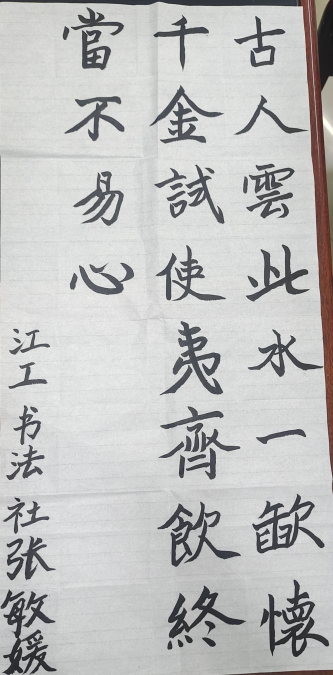 古人雲此水一歃懷
千金試使夷齊飲終
當不易心
江工书法社张敏媛